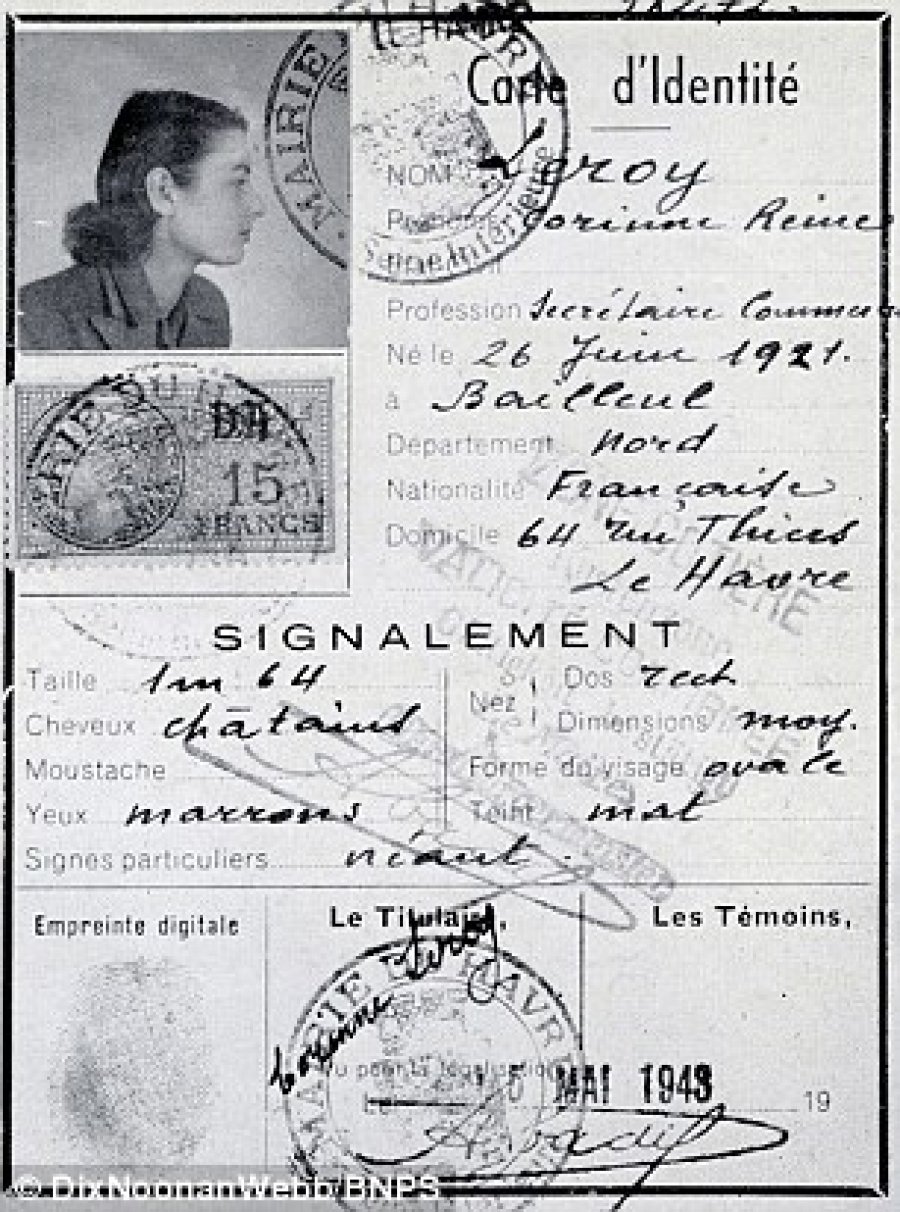 LE HAVRE
Carte d'Identité
MAIRIE
Seine Inférieure
NOM Leroy
Corinne Reine
Profession Secrétaire
Né le 26 Juin 1921.
à Bailleul
Département Nord
Nationalité Française
Domicile 64 rue Thiers
Le Havre
RIE DU H
15
FRANCS
SIGNALEMENT
Taille 1m 64
Cheveux châtains
Moustache
Yeux marrons
Signes particuliers néant.
Nez
Dos rect
Dimensions moy.
Forme du visage ovale
Teint mat
Empreinte digitale
Le Titulaire,
Les Témoins,
Corinne Leroy
MAIRIE DU HAVRE
Vu pour la légalisation
Le MAI 1943 19
© DixNoonanWebb/BNPS